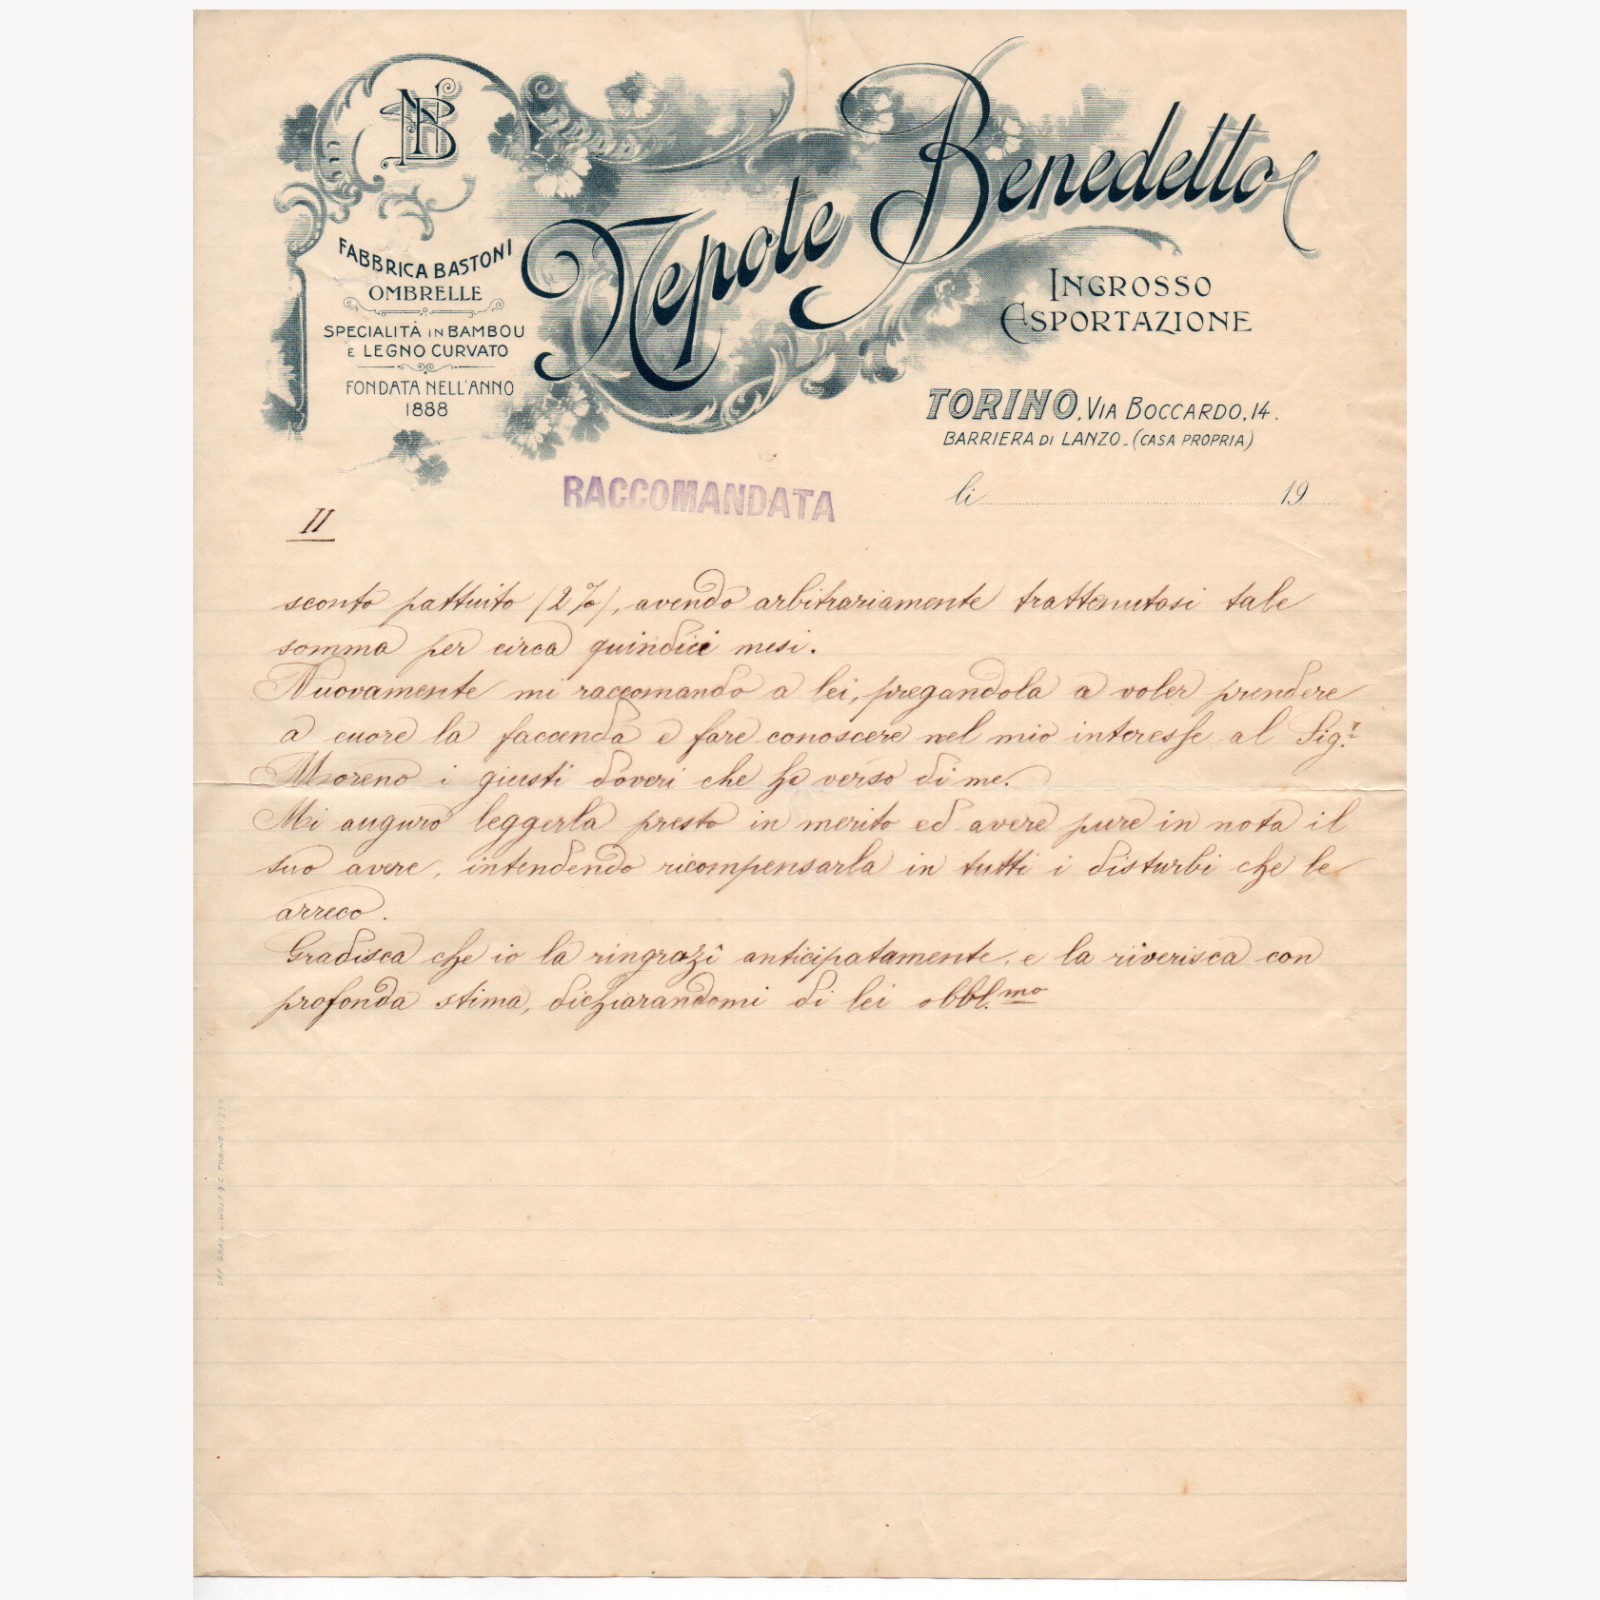 NB
Nepote Benedetto
FABBRICA BASTONI
OMBRELLE
SPECIALITÀ IN BAMBOU
E LEGNO CURVATO
FONDATA NELL'ANNO
1888
INGROSSO
ESPORTAZIONE
TORINO, VIA BOCCARDO, 14.
BARRIERA DI LANZO - (CASA PROPRIA)
RACCOMANDATA
li 19
II
sconto pattuito (2%), avendo arbitrariamente trattenutosi tale
somma per circa quindici mesi.
Nuovamente mi raccomando a lei, pregandola a voler prendere
a cuore la faccenda e fare conoscere nel mio interesse al Sig.r
Moreno i giusti doveri che ha verso di me.
Mi auguro leggerla presto in merito ed avere pure in nota il
suo avere, intendendo ricompensarla in tutti i disturbi che le
arreco.
Gradisca che io la ringrazî anticipatamente, e la riverisca con
profonda stima, dichiarandomi di lei obbl.mo